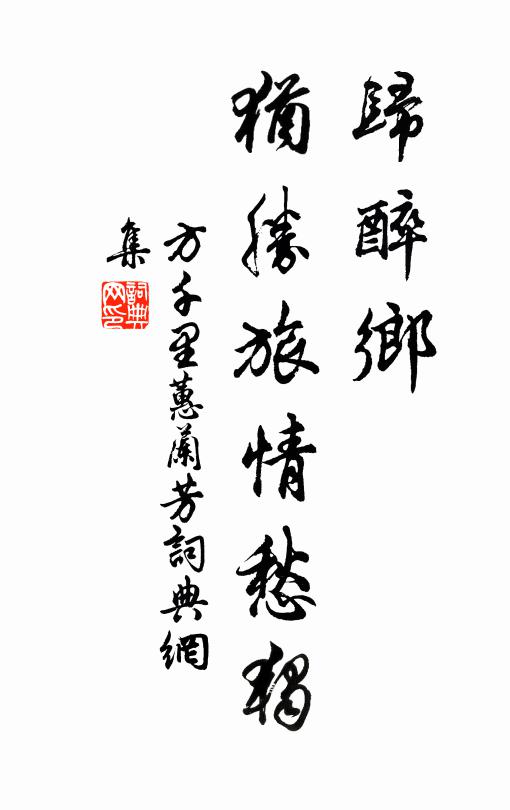 歸醉鄉
猶勝旅情愁獨
方千里蕙蘭芳詞典網
集
詞典網印